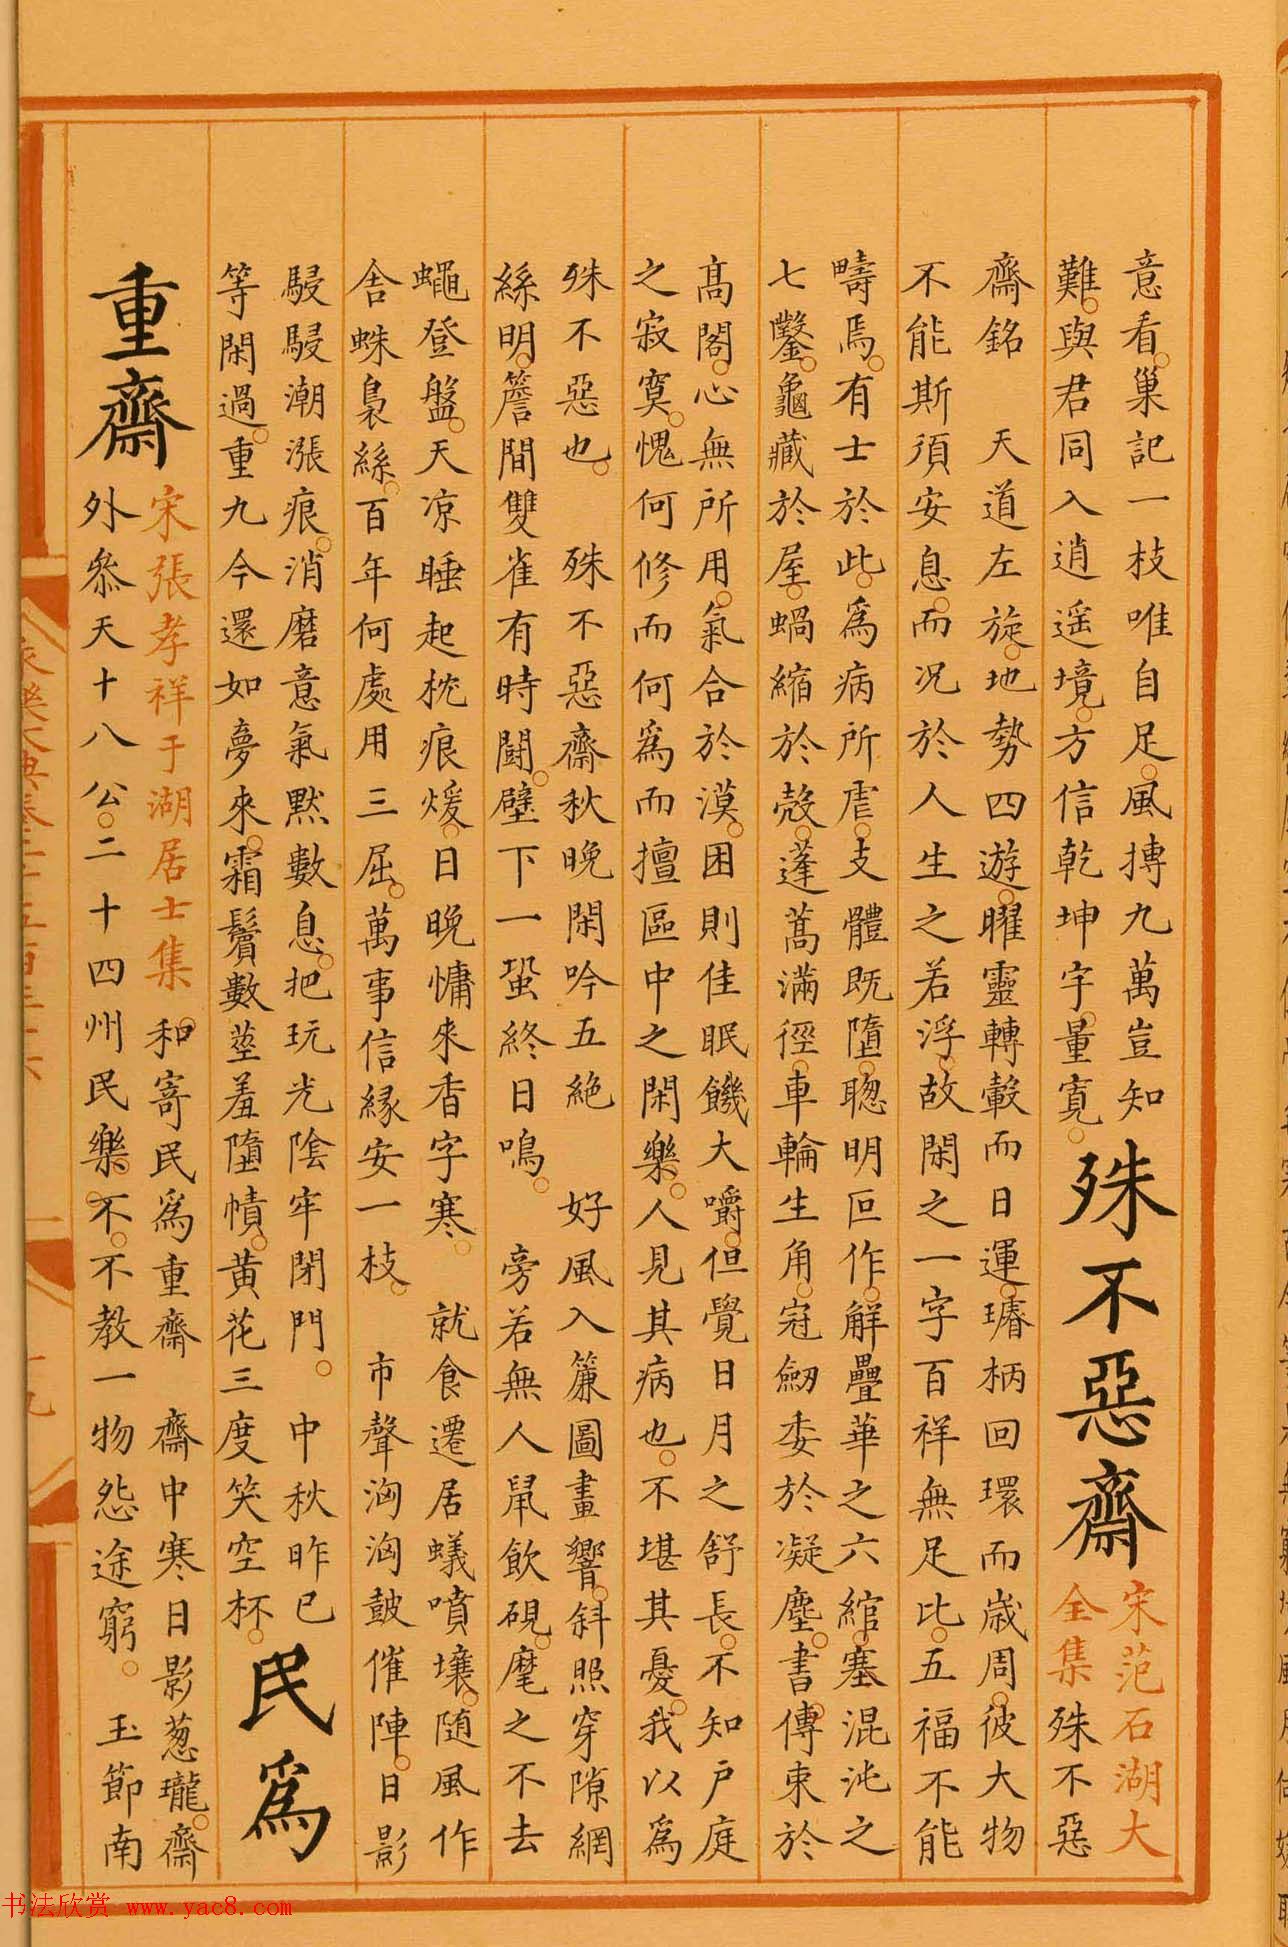 意看巢記一枝唯自足風摶九萬豈知
難與君同入逍遥境方信乾坤字量寬
殊不惡齋
宋范石湖大
全集
殊不惡
齋銘　天道左旋地勢四遊曜靈轉轂而日運璿柄回環而歲周彼大物
不能斯須安息而况於人生之若浮故閑之一字百祥無足比五福不能
疇焉有士於此爲病所虐支體既隳聰明叵作解疊華之六綰塞混沌之
七鑿龜藏於屋蝸縮於殼蓬蒿滿徑車輪生角冠劒委於凝塵書傳束於
高閣心無所用氣合於漠困則佳眠饑大嚼但覺日月之舒長不知户庭
之寂寞愧何修而何爲而擅區中之閑樂人見其病也不堪其憂我以爲
殊不惡也　殊不惡齋秋晚閑吟五絶　好風入簾圖畫響斜照穿隙網
絲明簷間雙雀有時鬪壁下一蛩終日鳴　旁若無人鼠飲硯麾之不去
蠅登盤天凉睡起枕痕煖日晚慵來香字寒　就食遷居蟻噴壤隨風作
舍蛛裊絲百年何處用三屈萬事信緣安一枝　市聲洶洶鼓催陣日影
駸駸潮漲痕消磨意氣默數息把玩光陰牢閉門　中秋昨已
等閑過重九今還如夢來霜鬢數莖羞墮幘黄花三度笑空杯
民爲
重齋
宋張孝祥于湖居士集
和寄民爲重齋　齋中寒日影葱瓏齋
外叅天十八公二十四州民樂不不教一物怨途窮　玉節南
永樂大典卷二千五百三十六
十九
书法欣赏 www.yac8.com